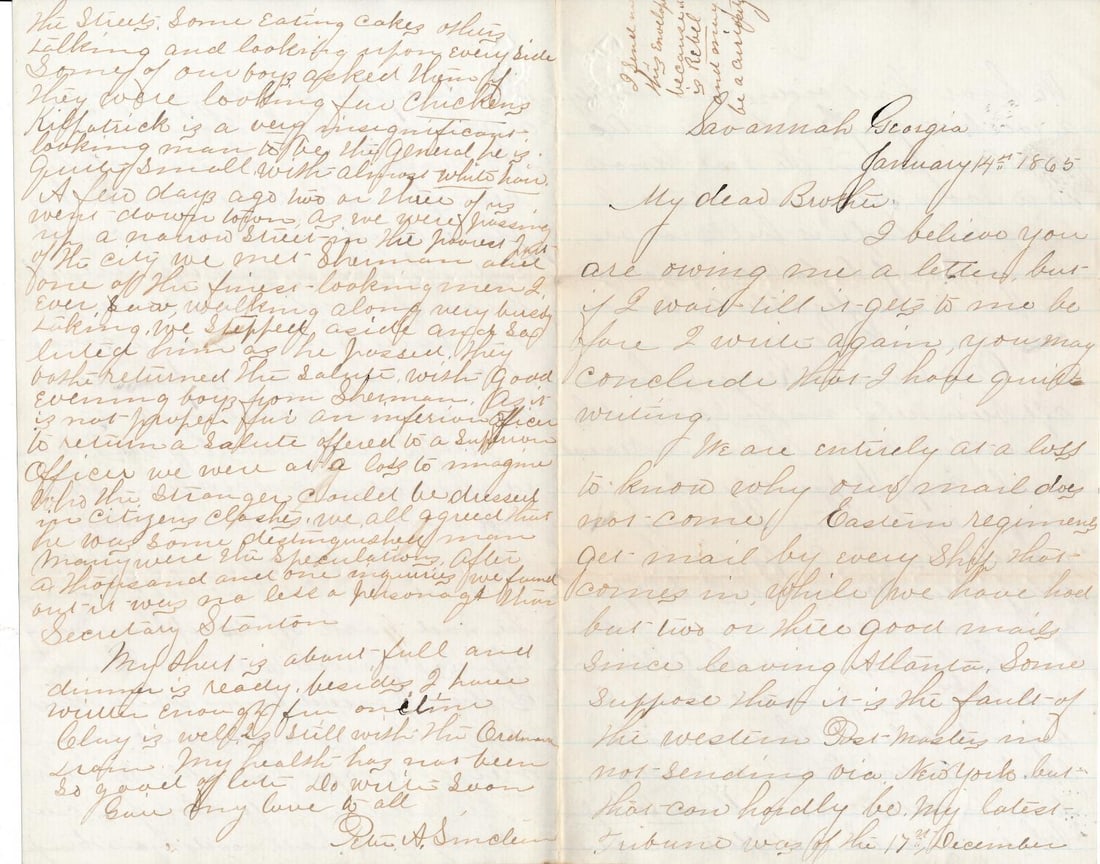 I send
this Envelope
because it
is Rebel
and may
be a curiosity
Savannah Georgia
January 14th 1865
My dear Brother
I believe you
are owing me a letter, but
if I wait till it gets to me be
fore I write again, you may
conclude that I have quit
writing.
We are entirely at a loss
to know why our mail does
not come. Eastern regiments
get mail by every Ship that
comes in, while we have had
but two or three good mails
since leaving Atlanta. Some
suppose that it is the fault of
the western Post Masters in
not sending via. New York but
that can hardly be. My latest
Tribune was of the 17th December
the Streets. Some eating cakes others
talking and looking upon every side
Some of our boys asked them if
they were looking for Chickens
Kilpatrick is a very insignificant
looking man to be the General he is
quite small with almost white hair.
A few days ago two or three of us
went down town. As we were passing
up a narrow Street in the poorest part
of the city we met Sherman and
one of the finest looking men I
ever saw, walking along very busily
talking. we stepped aside and Sa
luted him as he passed. They
both returned the Salute. with Good
evening boys from Sherman. As it
is not proper for an inferior officer
to return a Salute offered to a Superior
Officer we were at a loss to imagine
who the Stranger could be dressed
in Citizens Clothes. we all agreed that
he was some distinguished man
Many were the Speculations. After
a thousand and one inquiries we found
out it was no less a personage than
Secretary Stanton
My Sheet is about full and
dinner is ready. besides I have
written enough for one time
Clay is well, is still with the Ordnance
train. My health has not been
so good of late. Do write Soon
Give my love to all
Peter A. Sinclair